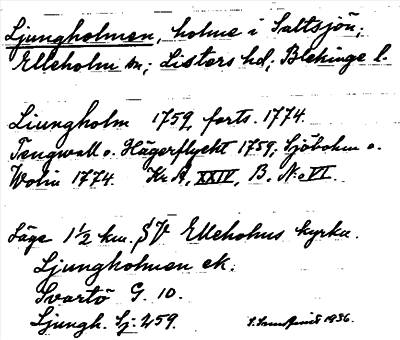 Ljungholmen, holme i Saltsjön;
Elleholm sn; Listers hd; Blekinge l.
Liungholm 1759, forts. 1774.
Tengwall o. Hägerflycht 1759; Sjöbohm o.
Wolin 1774. Kr. A, XXIV, B. No VI.
Läge 1 1/2 km. Elleholms kyrka.
Ljungholmen ek.
Svartö G. 10.
Ljungh. Sj. 259. 1936.